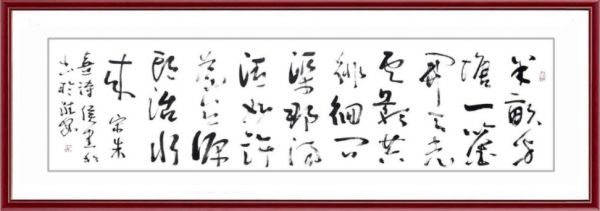 半畝方
塘一鑒
開天光
雲影共
徘徊問
渠那得
清如許
為有源
頭活水
來 宋朱
熹詩